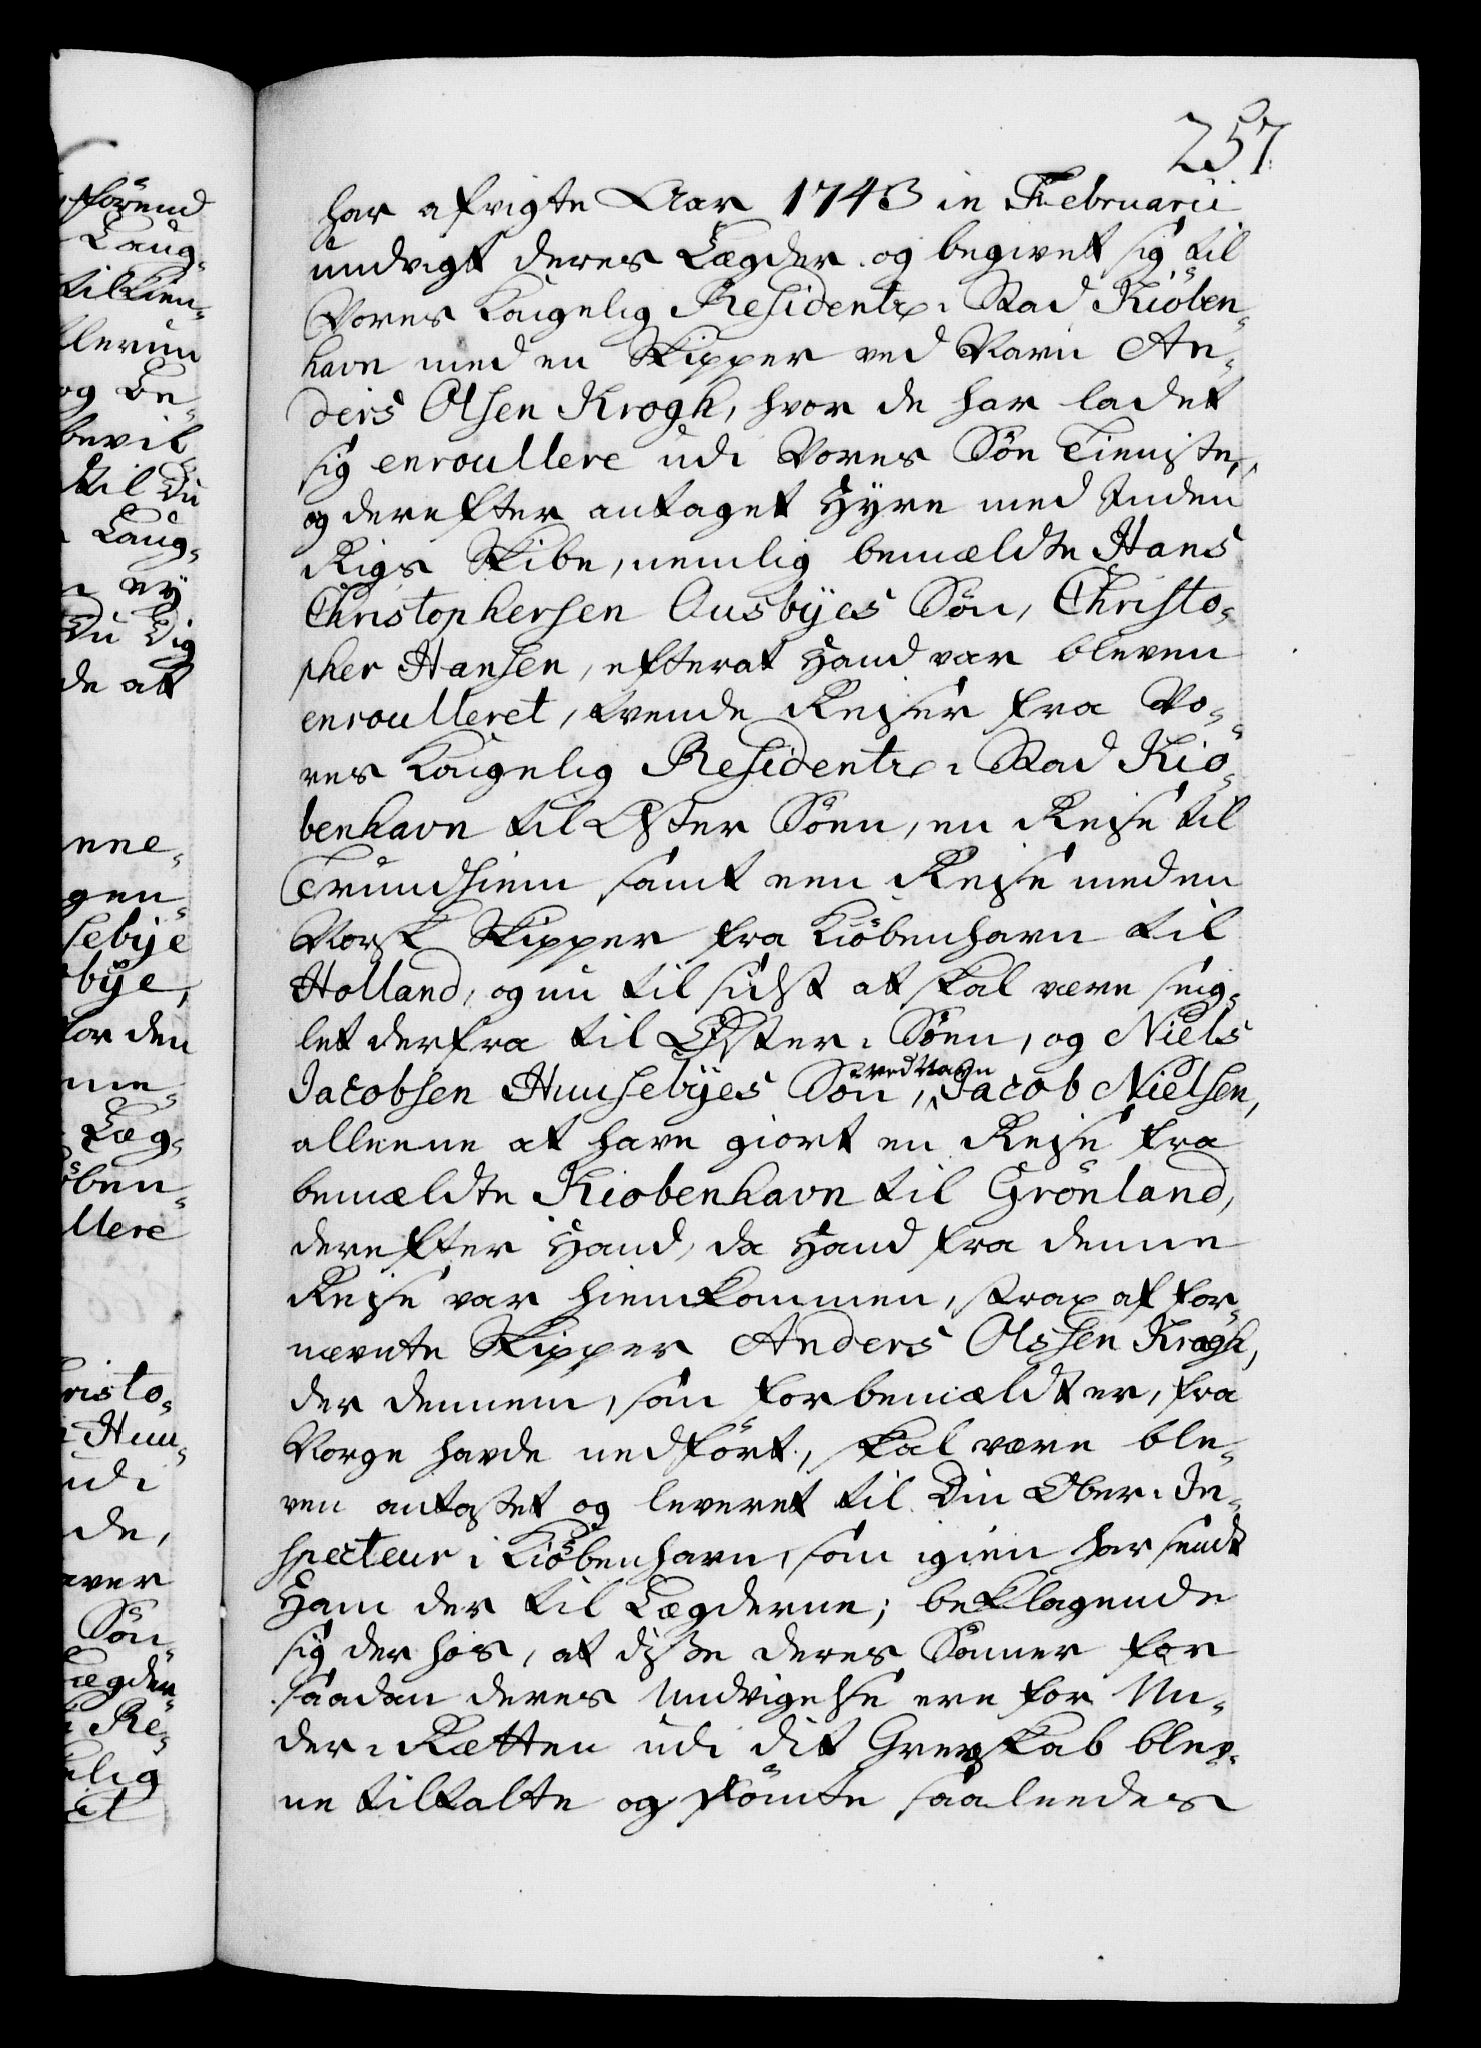 257.
har afvigte Aar 1743 in Februarii
undvigt deres Lægder og begivet sig til
Vores Kongelig Residentz-Stad Kiöben-
havn med en Skipper ved Navn An-
ders Olsen Krogh, hvor de har ladet
sig enroullere udi Vores Söe Tieniste,
og derefter antaget Hyre med Inden
Rigs Skibe, nemlig bemældte Hans
Christophersen Ousbyes Sön, Christo-
pher Hansen, efterat Hand var bleven
enroulleret, tvende Reyser fra Vo-
res Kongelig Residentz-Stad Kiö-
benhavn til Öster Söen, en Reyse til
Trundhiem samt een Reyse med en
Norsk Skipper fra Kiöbenhavn til
Holland, og nu til sidst at skal være seig-
let derfra til Öster-Söen, og Niels
Jacobsen Huusebyes Sön, ved Navn Jacob Nielsen,
alleene at have giort en Reyse fra
bemældte Kiobenhavn til Grönland,
derefter Hand, da Hand fra denne
Reyse var hiemkommen, strax af for-
nævnte Skipper Anders Olssen Krogh,
der dennem, som forbemældt er, fra
Norge havde nedfört, skal være ble-
ven antastet og leveret til Din Ober-In-
specteur i Kiöbenhavn, som igien har sendt
Ham der til Lægderne; beklagende
sig der hos, at disse deres Sönner for
saadan deres Undvigelse ere for Un-
der-Rætten udi dit Grevskab blev-
ne tiltalte og dömte saaleedes